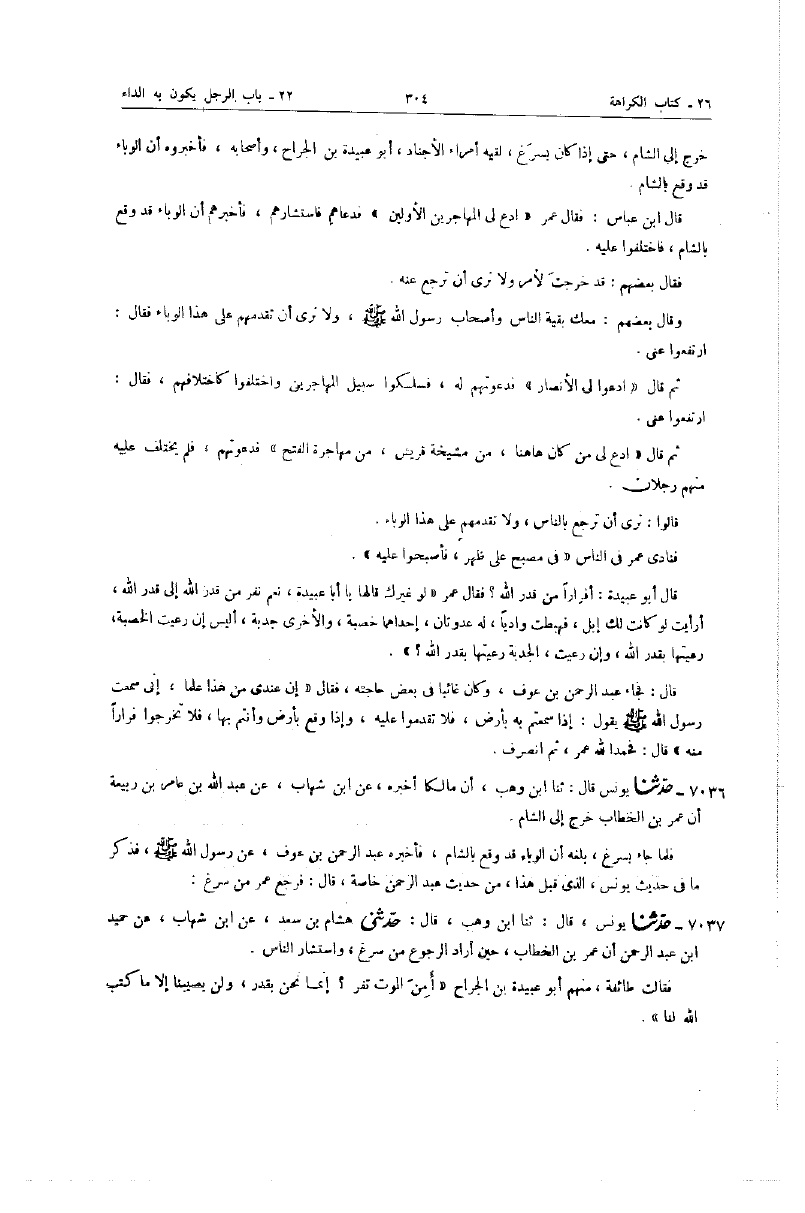 ٢٦ - كتاب الكراهة ٣٠٤ ٢٢ - باب الرجل يكون به الداء
خرج إلى الشام ، حتى إذا كان بسَرْغ ، لقيه أمراء الأجناد ، أبو عبيدة بن الجراح ، وأصحابه ، فأخبروه أن الوباء
قد وقع بالشام .
قال ابن عباس : فقال عمر « ادع لى المهاجرين الأولين » فدعاهم فاستشارهم ، فأخبرهم أن الوباء قد وقع
بالشام ، فاختلفوا عليه .
فقال بعضهم : قد خرجتَ لأمر ولا نرى أن ترجع عنه .
وقال بعضهم : معك بقية الناس وأصحاب رسول الله ﷺ ، ولا نرى أن تقدمهم على هذا الوباء فقال :
ارتفعوا عنى .
ثم قال « ادعوا لى الأنصار » فدعوتهم له ، فسلكوا سبيل المهاجرين واختلفوا كاختلافهم ، فقال :
ارتفعوا عنى .
ثم قال « ادع لى من كان هاهنا ، من مشيخة قريش ، من مهاجرة الفتح » فدعوتهم ، فلم يختلف عليه
منهم رجلان .
قالوا : نرى أن ترجع بالناس ، ولا تقدمهم على هذا الوباء .
فنادى عمر فى الناس « فى مصبح على ظهر ، فأصبحوا عليه » .
قال أبو عبيدة : أفراراً من قدر الله ؟ فقال عمر « لو غيرك قالها يا أبا عبيدة ، نعم نفر من قدر الله إلى قدر الله ،
أرأيت لو كانت لك إبل ، فهبطت وادياً ، له عدوتان ، إحداهما خصبة ، والأخرى جدبة ، أليس إن رعيت الخصبة،
رعيتها بقدر الله ، وإن رعيت ، الجدبة رعيتها بقدر الله ؟ » .
قال : فجاء عبد الرحمن بن عوف ، وكان غائبا فى بعض حاجته ، فقال « إن عندى من هذا علما ، إنى سمعت
رسول الله ﷺ يقول : إذا سمعتم به بأرض ، فلا تقدموا عليه ، وإذا وقع بأرض وأنتم بها ، فلا تخرجوا فراراً
منه » قال : فحمد الله عمر ، ثم انصرف .
٧٠٣٦ - حدّثنا يونس قال : ثنا ابن وهب ، أن مالكا أخبره ، عن ابن شهاب ، عن عبد الله بن عامر بن ربيعة
أن عمر بن الخطاب خرج إلى الشام .
فلما جاء بسرغ ، بلغه أن الوباء قد وقع بالشام ، فأخبره عبد الرحمن بن عوف ، عن رسول الله ﷺ ، فذكر
ما فى حديث يونس ، الذى قبل هذا ، من حديث عبد الرحمن خاصة ، قال : فرجع عمر من سرغ :
٧٠٣٧ - حدّثنا يونس ، قال : ثنا ابن وهب ، قال : حدّثنى هشام بن سعد ، عن ابن شهاب ، عن حميد
ابن عبد الرحمن أن عمر بن الخطاب ، حين أراد الرجوع من سرغ ، واستشار الناس .
فقالت طائفة ، منهم أبو عبيدة بن الجراح « أَمِنَ الموت تفر ؟ إنما نحن بقدر ، ولن يصيبنا إلا ما كتب
الله لنا » .